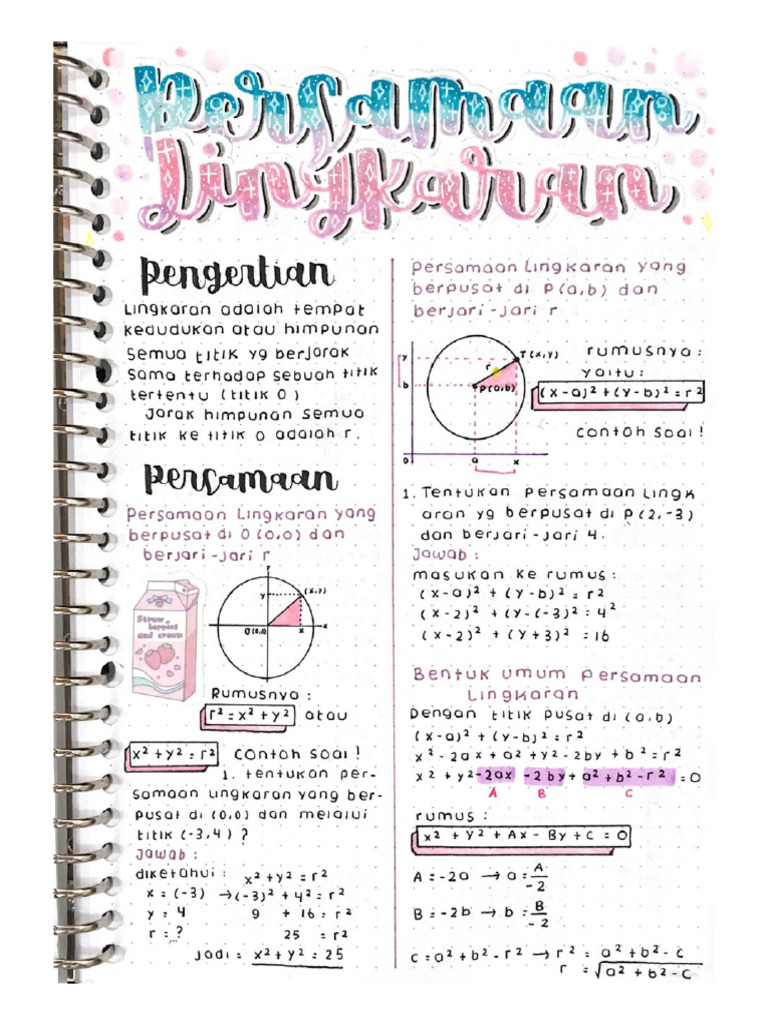 Persamaan
Lingkaran
Pengertian
Lingkaran adalah tempat
kedudukan atau himpunan
semua titik yg berjarak
sama terhadap sebuah titik
tertentu (titik O)
Jarak himpunan semua
titik ke titik O adalah r.
Persamaan
Persamaan Lingkaran yang
berpusat di O(0,0) dan
berjari-jari r
Y
Y
(x,y)
O(0,0)
x
x
Straw
berries
and cream
Rumusnya :
r² = x² + y² atau
x² + y² = r² Contoh soal !
1. tentukan per-
samaan lingkaran yang ber-
pusat di (0,0) dan melalui
titik (-3,4) ?
Jawab :
diketahui : x² + y² = r²
x = (-3) → (-3)² + 4² = r²
y = 4 9 + 16 = r²
r = ? 25 = r²
Jadi = x² + y² = 25
Persamaan Lingkaran yang
berpusat di P(a,b) dan
berjari-jari r
y
b
r
T(x,y)
P(a,b)
0
a
x
rumusnya :
yaitu :
(x-a)² + (y-b)² = r²
Contoh soal !
1. Tentukan persamaan lingk
aran yg berpusat di P(2,-3)
dan berjari-jari 4.
Jawab :
masukan ke rumus :
(x-a)² + (y-b)² = r²
(x-2)² + (y-(-3)² = 4²
(x-2)² + (y+3)² = 16
Bentuk umum persamaan
Lingkaran
Dengan titik pusat di (a,b)
(x-a)² + (y-b)² = r²
x² - 2ax + a² + y² - 2by + b² = r²
x² + y² - 2ax - 2by + a² + b² - r² = 0
A B C
rumus :
x² + y² + Ax - By + C = 0
A = -2a → a = A/-2
B = -2b → b = B/-2
C = a² + b² - r² → r² = a² + b² - C
r = √a² + b² - C